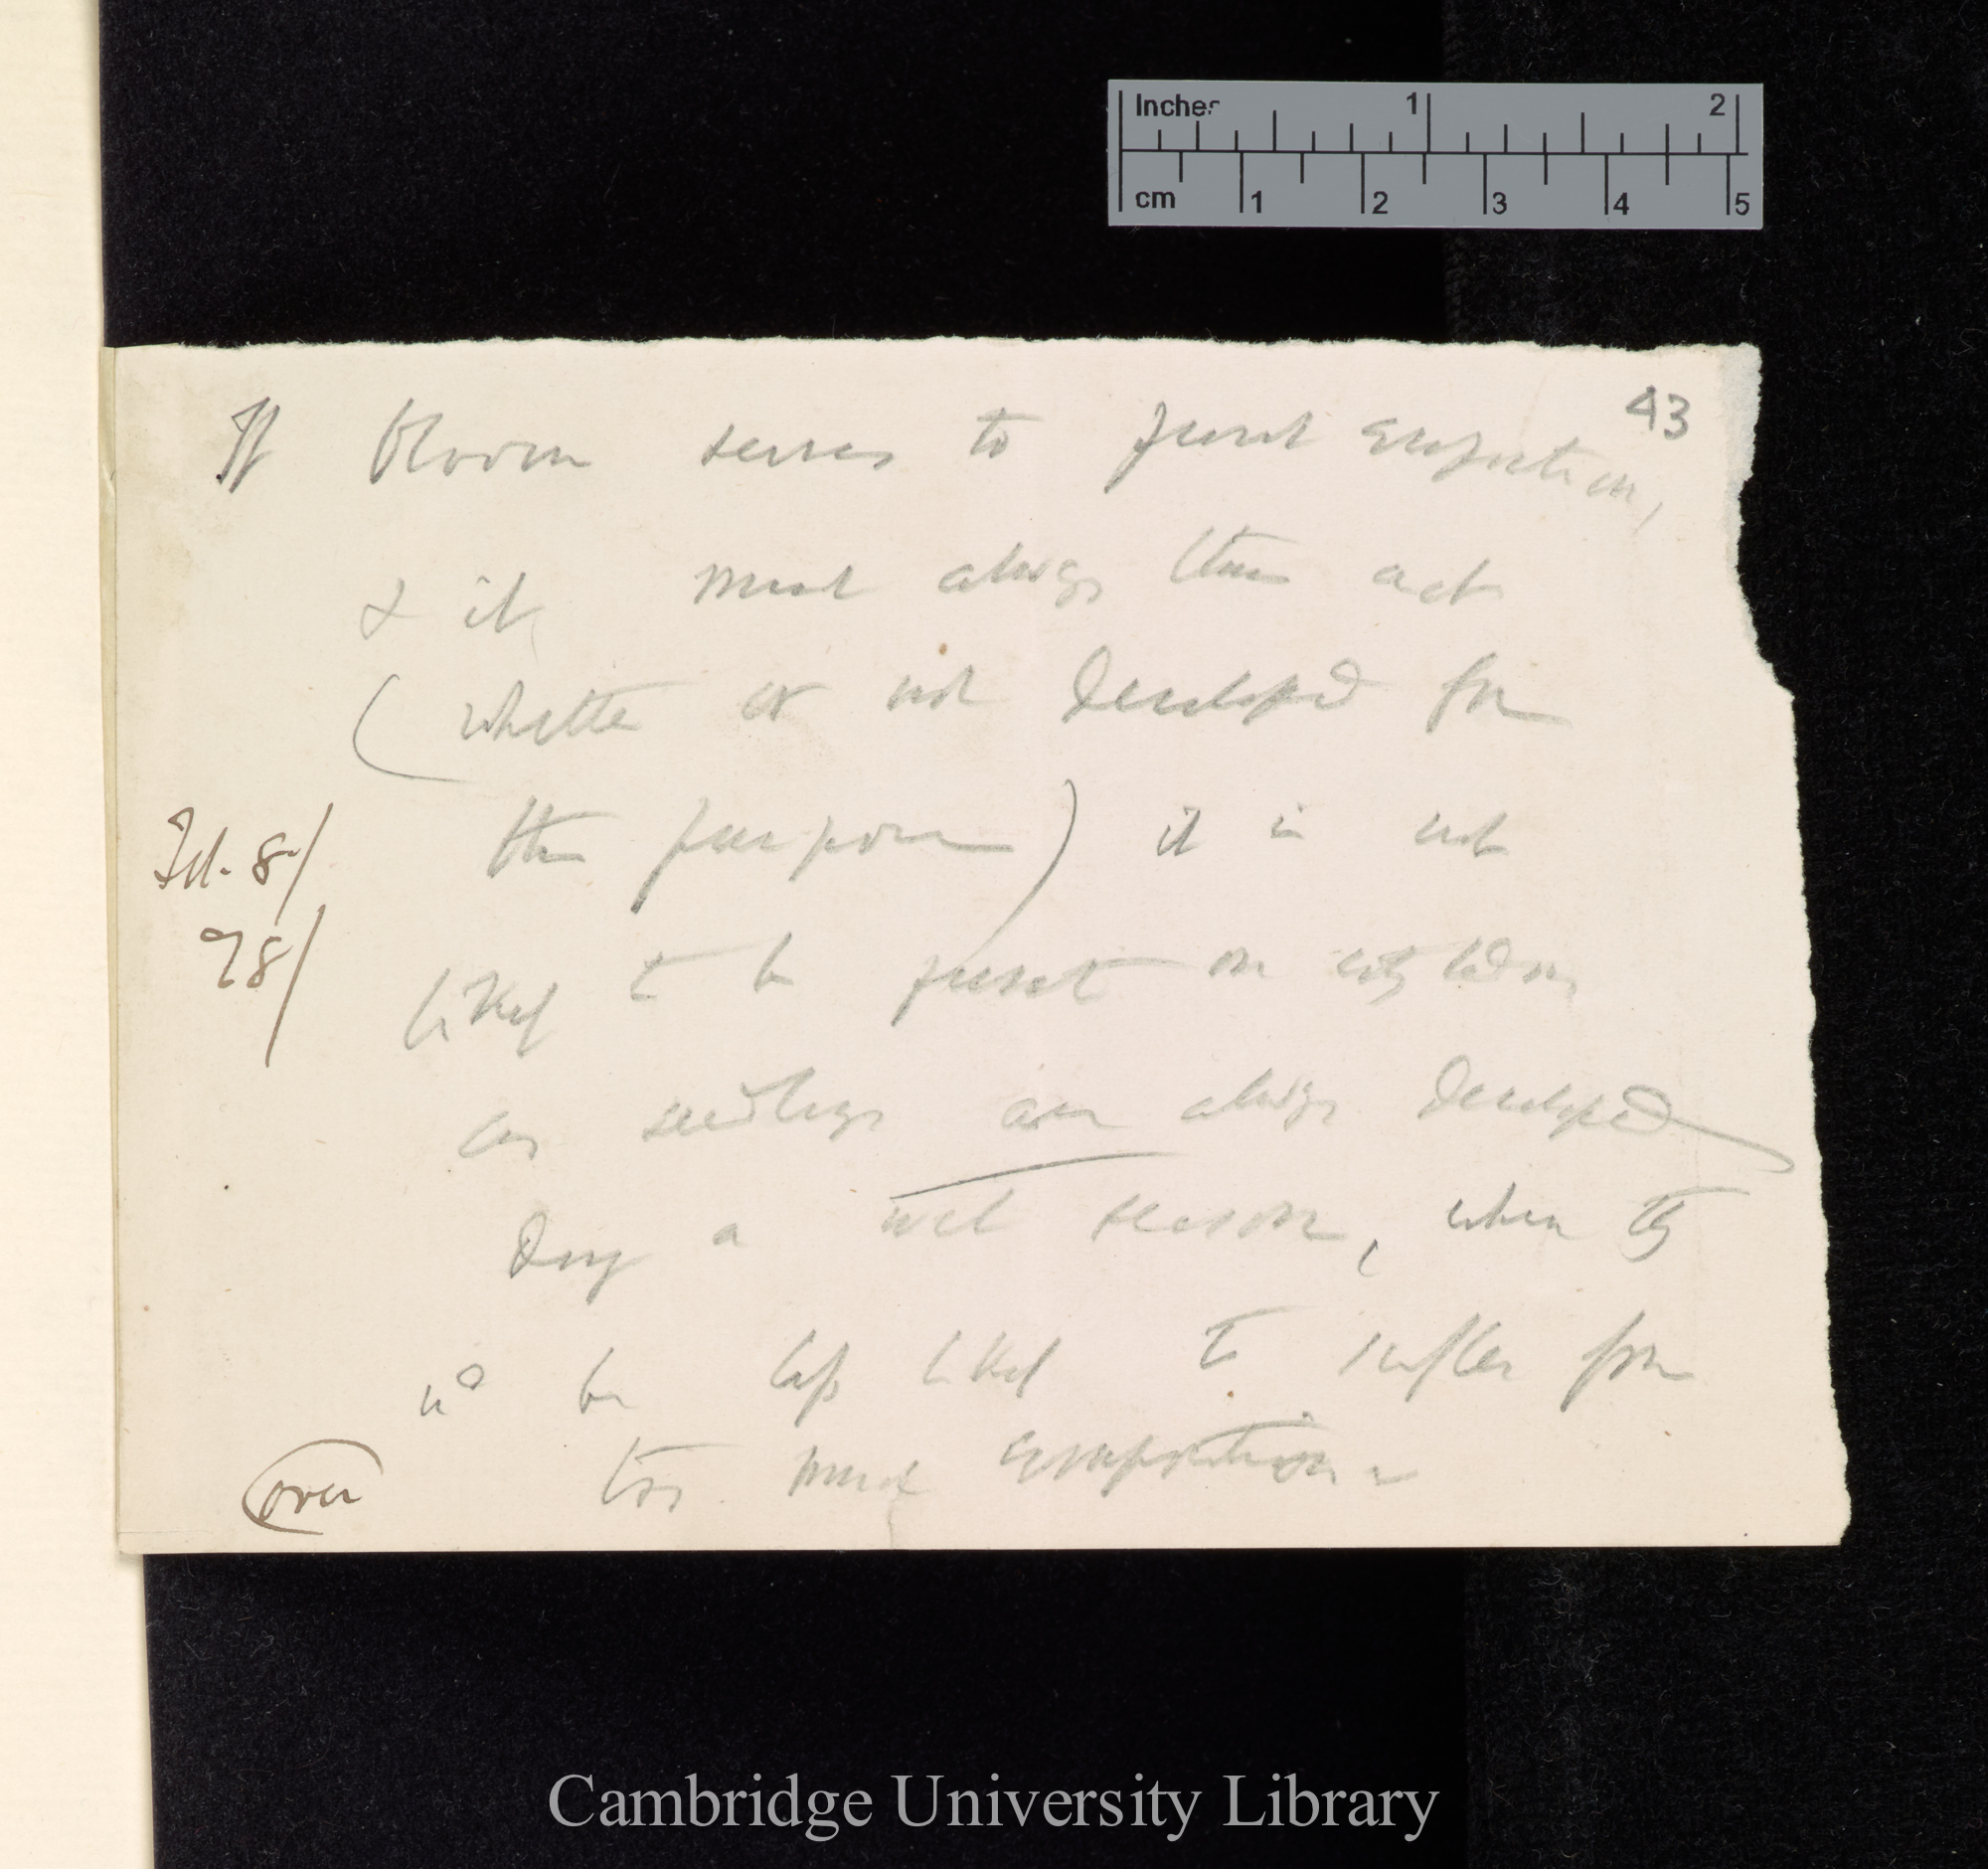 Inches 1 2
cm 1 2 3 4 5
43
If bloom serves to prevent evaporation,
& it must always thus act
(whether or not developed for
this purpose) it is not
Feb. 8/
78/
likely to be present on cotyledons
as seedlings are always developed
during a wet season, when they
wd be less likely to suffer from
too much evaporation —
over
Cambridge University Library